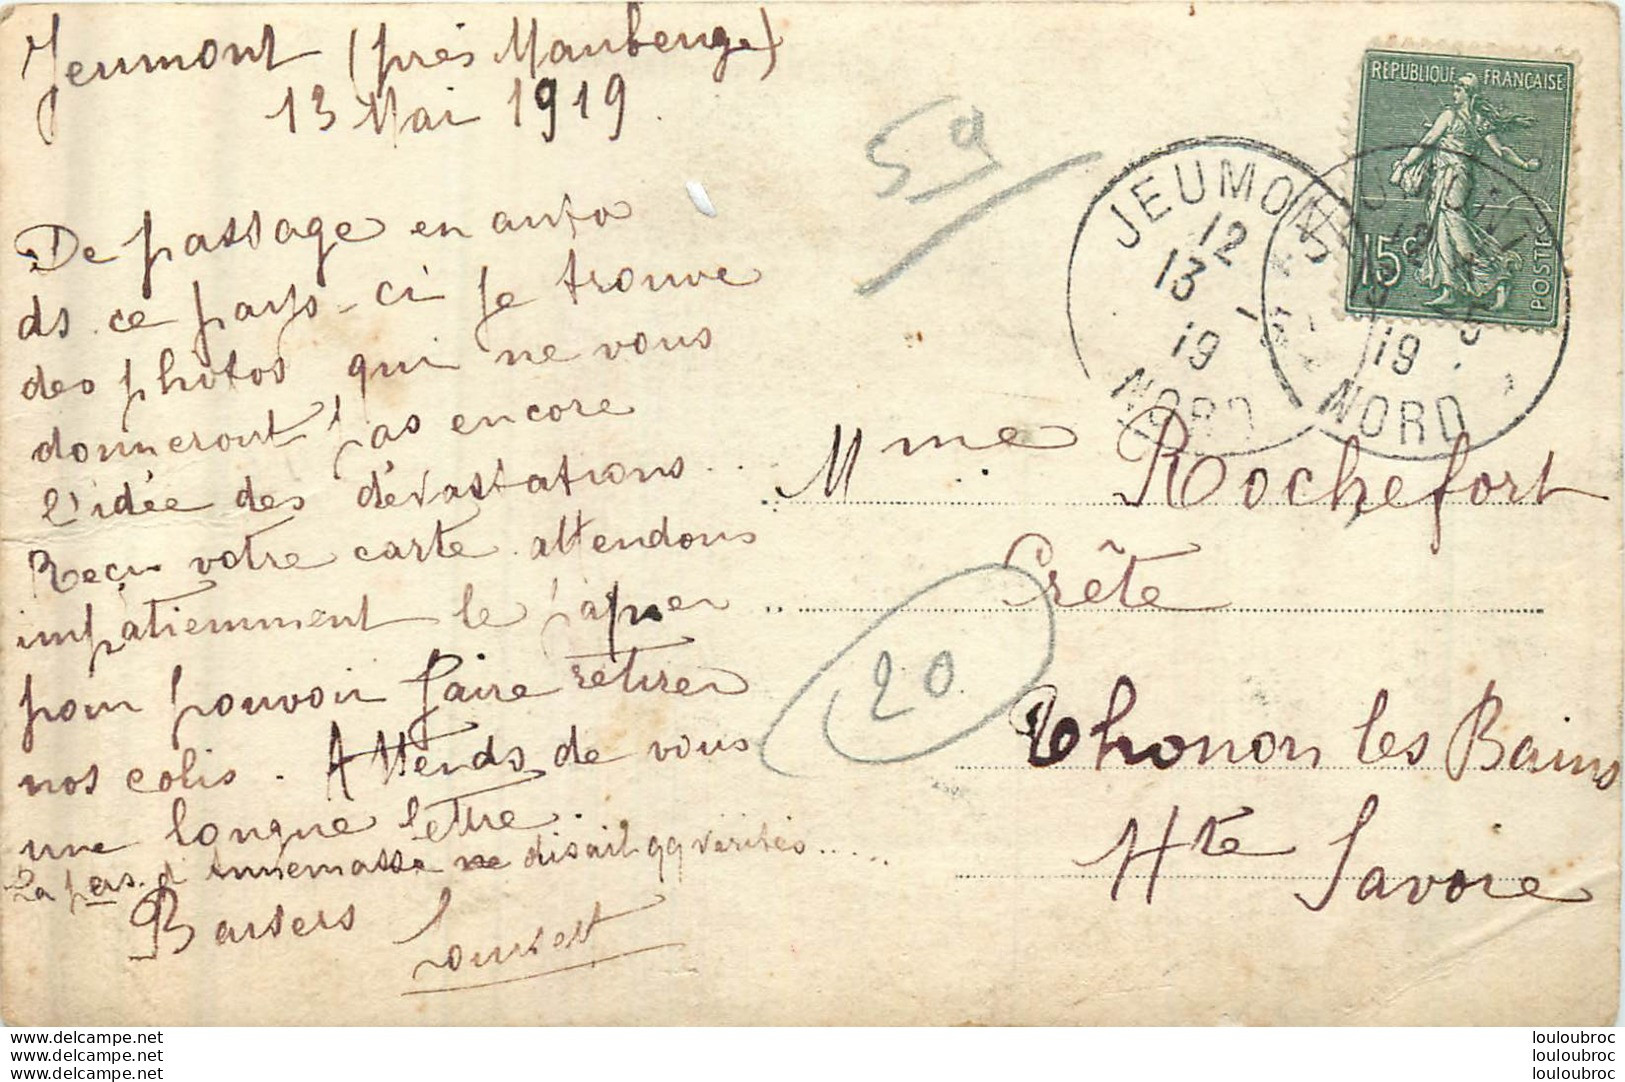 Jeumont (près Maubeuge)
13 Mai 1919
De passage en auto
ds ce pays-ci je trouve
des photos qui ne vous
donneront pas encore
l'idée des dévastations..
Reçu votre carte. attendons
impatiemment le papier
pour pouvoir faire retirer
nos colis. Attends de vous
une longue lettre.
La pers. d'Annemasse ne disait qq vérités.....
Baisers
59
REPUBLIQUE FRANÇAISE
15c
POSTES
JEUMONT
12
13
19
NORD
JEUMONT
12
19
NORD
Mme Rochefort
Crête
20
Thonon les Bains
Hte Savoie
www.delcampe.net
louloubroc
www.delcampe.net
louloubroc
www.delcampe.net
louloubroc